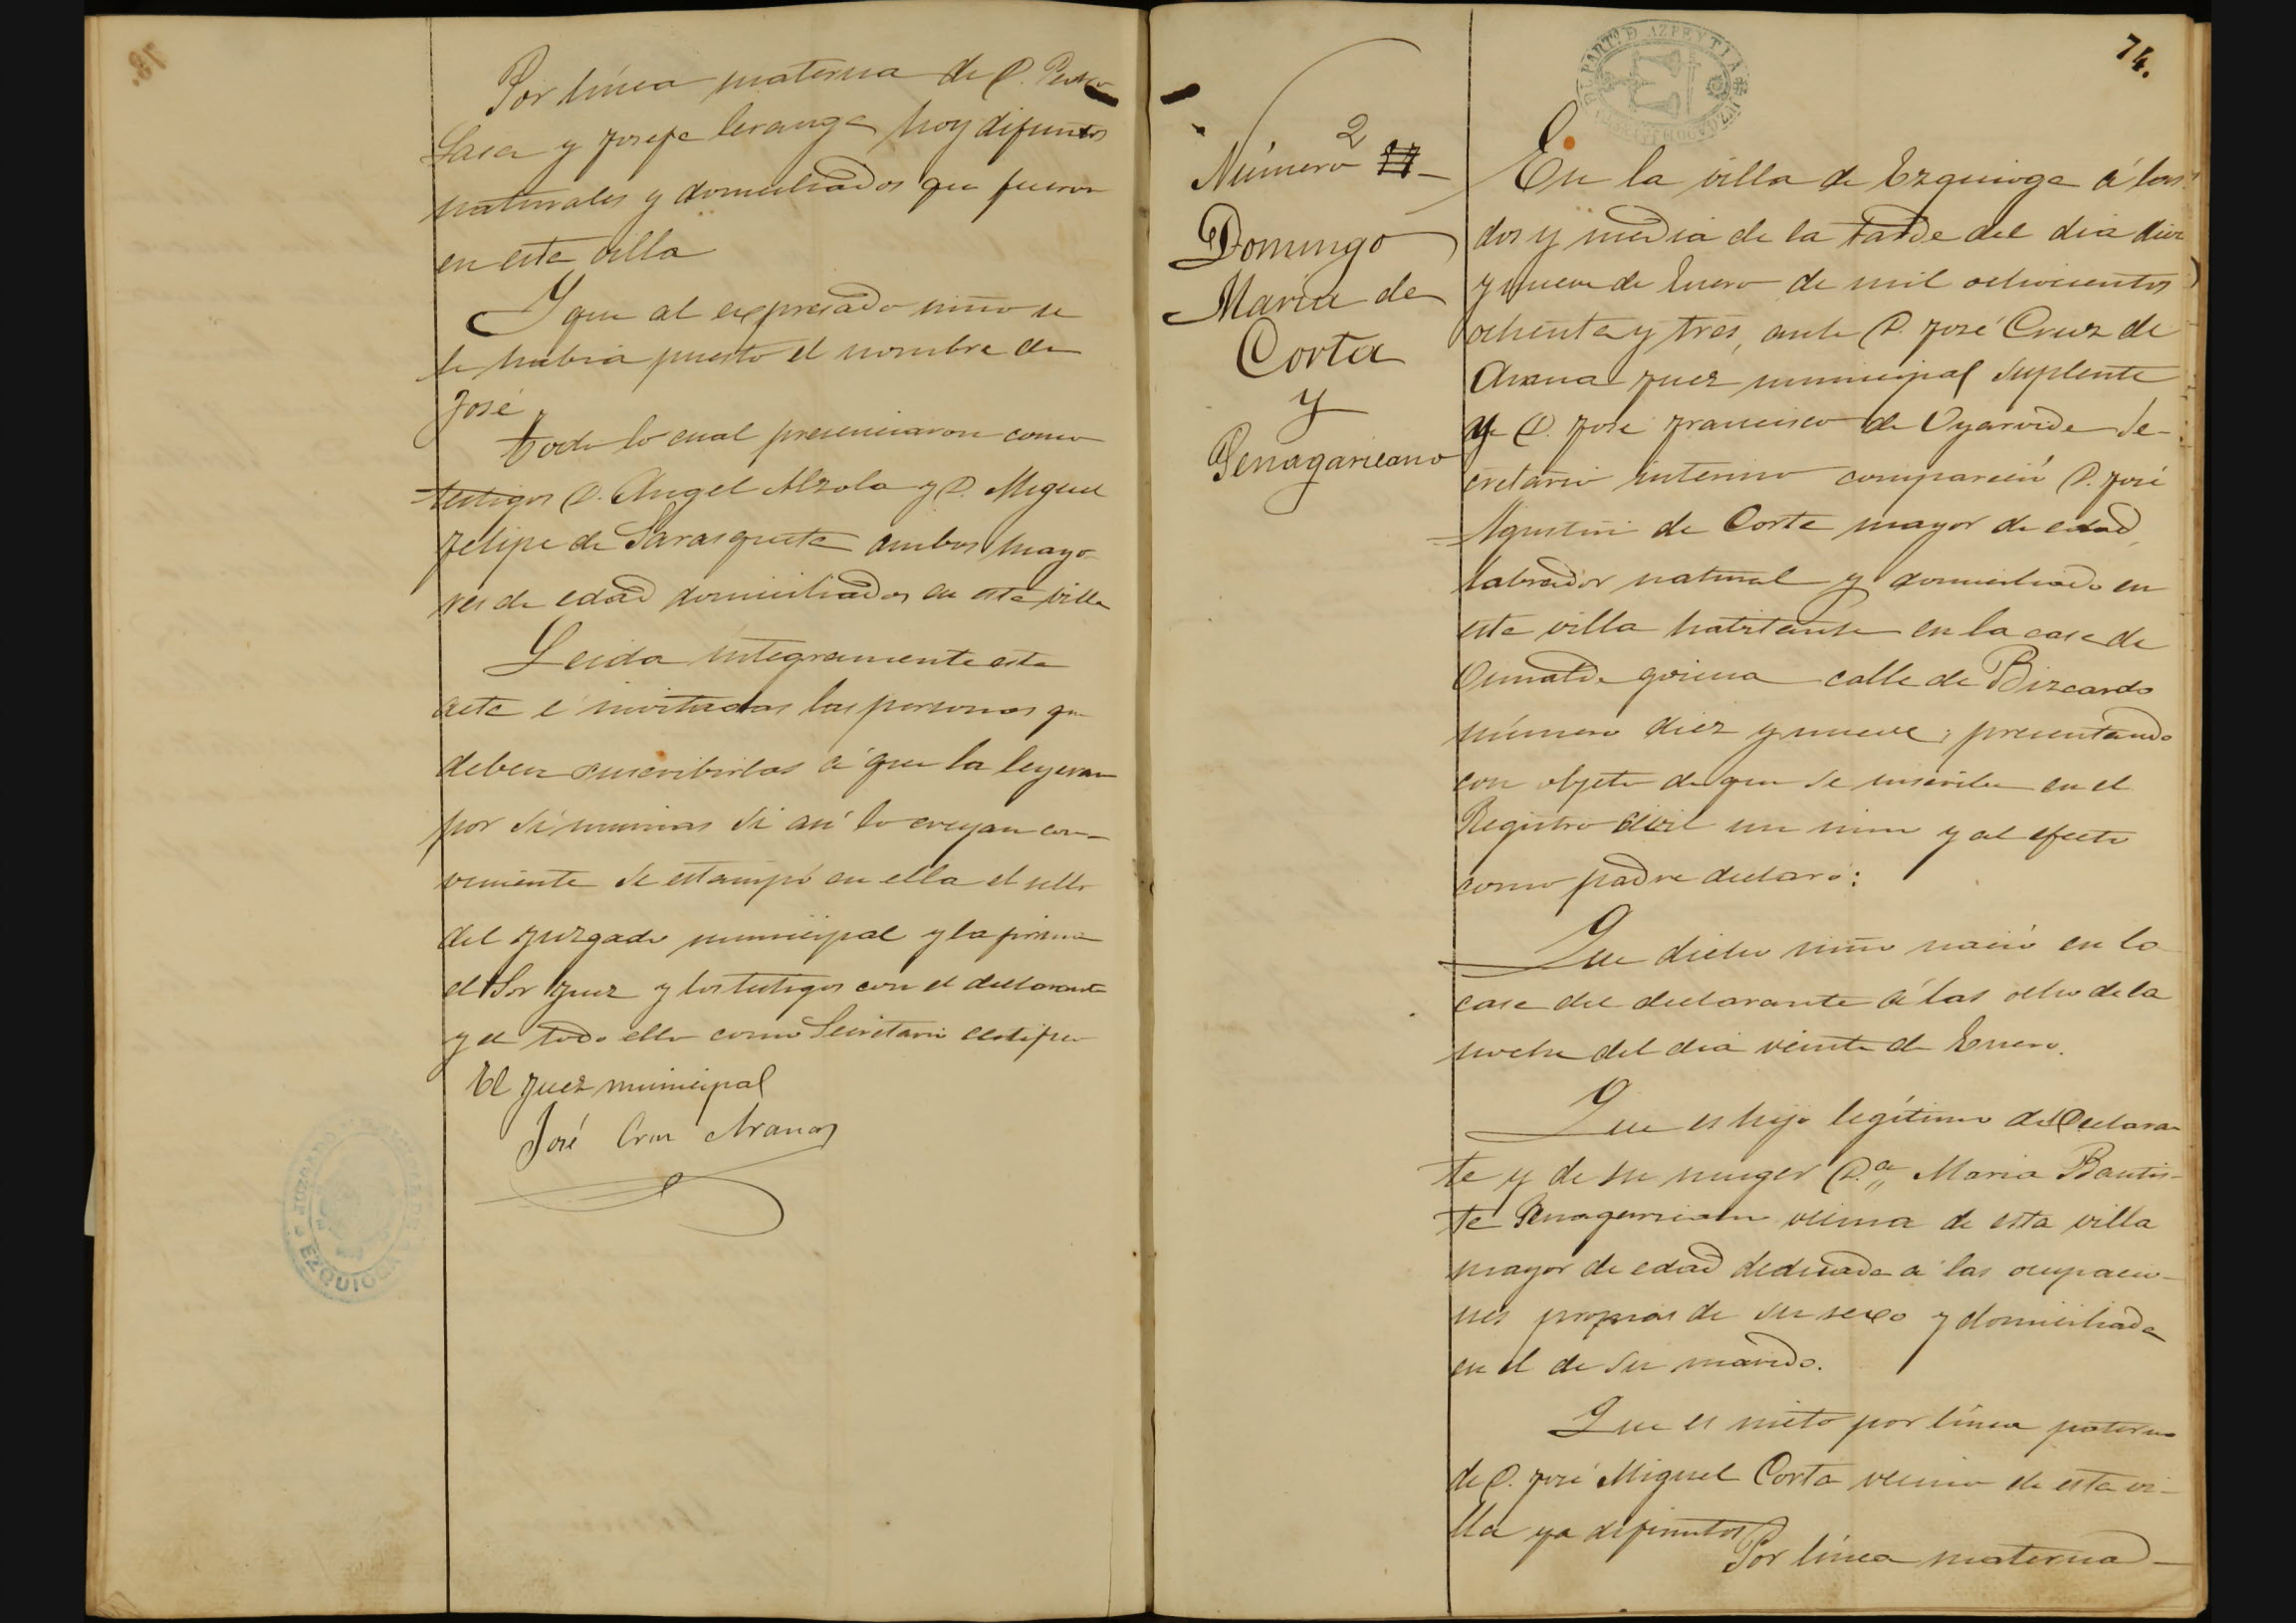 Por línea materna de D. Pedro
Lasa y Josefa Ceranga hoy difuntos
naturales y domiciliados que fueron
en esta villa
Y que al expresado niño se
le habia puesto el nombre de
José
Todo lo cual presenciaron como
testigos D. Angel Alzola y D. Miguel
Felipe de Sarasqueta ambos mayo-
res de edad domiciliados en esta villa
Leida integramente esta
acta é invitadas las personas que
deben suscribirlas á que la leyeran
por sí mismas si así lo creyan con-
veniente se estampó en ella el sello
del Juzgado municipal y la firma
el Sor Juez y los testigos con el declarante
y de todo ello como Secretario certifico
El Juez municipal
José Cruz Arana
JUZGADO
EZQUIOGA
74.
PART.º D. AZPEYTIA
Número 2 11
Domingo
Maria de
Corta
y
Penagaricano
En la villa de Ezquioga á las
dos y media de la tarde del dia diez
y nueve de Enero de mil ochocientos
ochenta y tres, ante D. José Cruz de
Arana Juez municipal suplente
y D. José Francisco de Oyarvide Se-
cretario interino compareció D. José
Agustin de Corta mayor de edad,
labrador natural y domiciliado en
esta villa habitante en la casa de
goiena calle de Bizcardo
número diez y nueve; presentando
con objeto de que se inscriba en el
Registro civil un niño y al efecto
como padre declaró:
Que dicho niño nació en la
casa del declarante á las ocho de la
noche del dia veinte de Enero.
Que es hijo legítimo del Declaran
te y de su muger D.ª Maria Bautis-
ta Penagaricano vecina de esta villa
mayor de edad dedicada a las ocupacio-
nes propias de su sexo y domiciliada
en el de su marido.
Que es nieto por línea paterna
de D. José Miguel Corta vecino de esta vi-
lla ya difuntos
Por línea materna